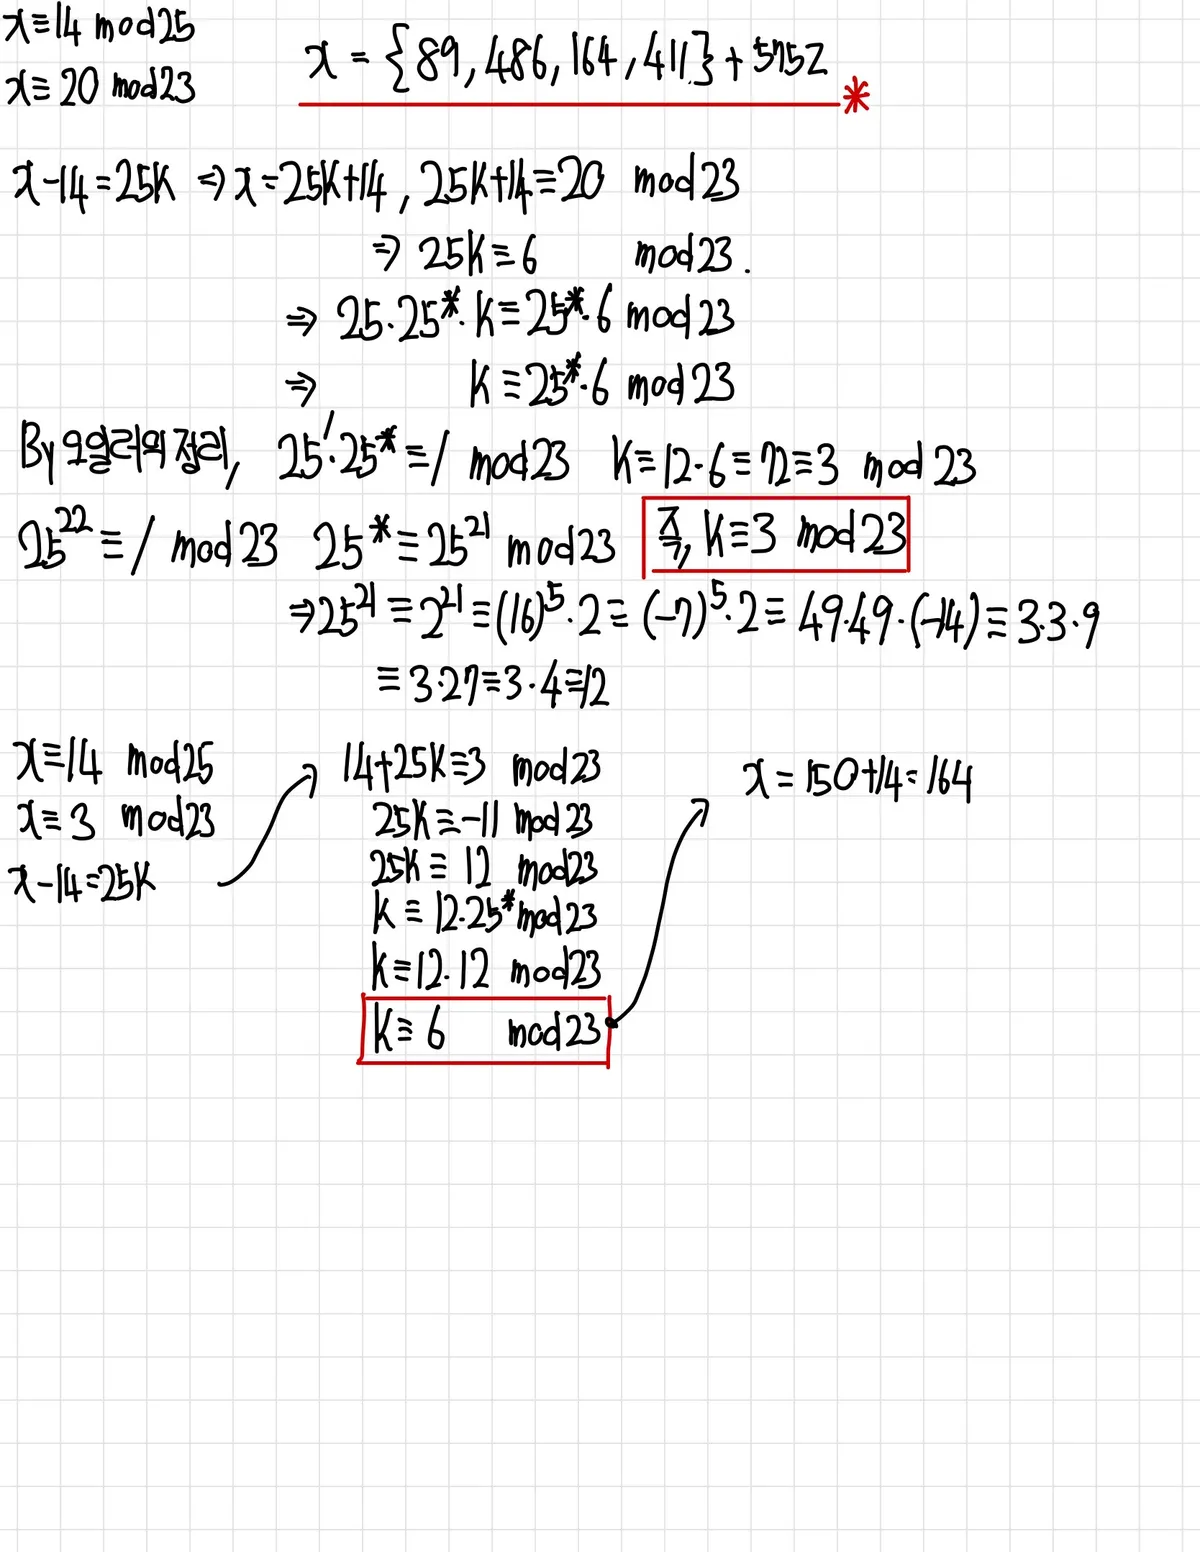 x≡14 mod25
x≡20 mod23
x = {89, 486, 164, 411.} + 575Z *
x-14=25k ⇒ x=25k+14, 25k+14≡20 mod23
⇒ 25k≡6 mod23.
⇒ 25·25*·k≡25*·6 mod23
⇒ k≡25*·6 mod23
By 오일러의 정리, 25¹·25*≡1 mod23 k≡12·6≡72≡3 mod23
25²²≡1 mod23 25*≡25²¹ mod23 즉, k≡3 mod23
⇒25²¹≡2²¹≡(16)⁵·2≡(-7)⁵·2≡49·49·(-14)≡3·3·9
≡3·27≡3·4≡12
x≡14 mod25
x≡3 mod23
x-14=25k
14+25k≡3 mod23
25k≡-11 mod23
25k≡12 mod23
k≡12·25* mod23
k≡12·12 mod23
k≡6 mod23
x=150+14=164